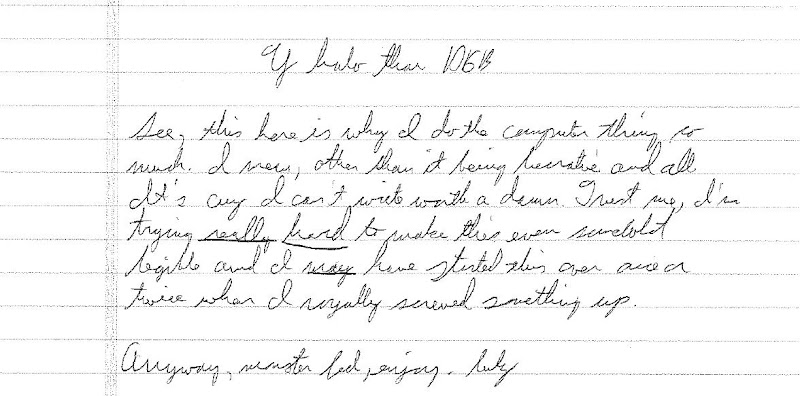 Y halo thar DGB
See, this here is why I do the computer thing so
much. I mean, other than it being lucrative and all
It's cuz I can't write worth a damn. Trust me, I'm
trying really hard to make this even somewhat
legible and I may have started this over once or
twice when I royally screwed something up.
Anyway, monster fed, enjoy.